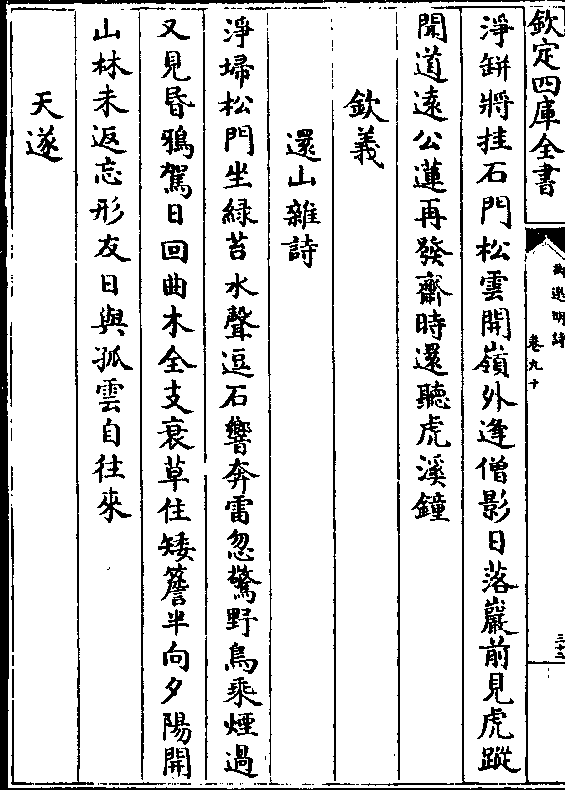 欽定四庫全書
御選明詩
卷九十
三十二
淨缾將挂石門松雲開嶺外逢僧影日落巖前見虎蹤
聞道遠公蓮再發齋時還聽虎溪鐘
欽義
還山雜詩
淨埽松門坐綠苔水聲逗石響奔雷忽驚野鳥乘煙過
又見昬鴉駕日回曲木全支衰草住矮簷半向夕陽開
山林未返忘形友日與孤雲自往來
天遂